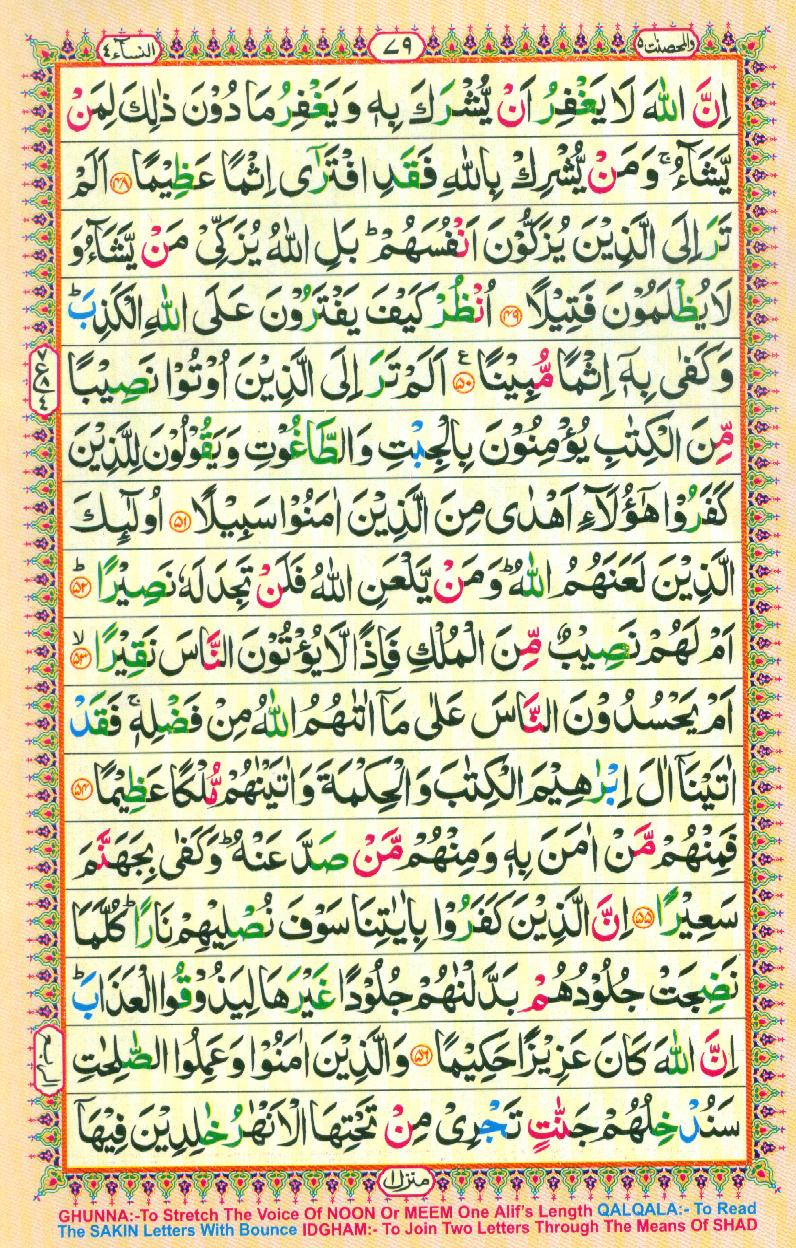 النسآء ٤ ٧٩ والمحصنت ٥
اِنَّ اللّٰهَ لَا يَغْفِرُ اَنْ يُّشْرَكَ بِهٖ وَيَغْفِرُ مَا دُوْنَ ذٰلِكَ لِمَنْ
يَّشَآءُ ۚ وَمَنْ يُّشْرِكْ بِاللّٰهِ فَقَدِ افْتَرٰٓى اِثْمًا عَظِيْمًا ﴿۴۸﴾ اَلَمْ
تَرَ اِلَى الَّذِيْنَ يُزَكُّوْنَ اَنْفُسَهُمْ ؕ بَلِ اللّٰهُ يُزَكِّىْ مَنْ يَّشَآءُ وَ
لَا يُظْلَمُوْنَ فَتِيْلًا ﴿۴۹﴾ اُنْظُرْ كَيْفَ يَفْتَرُوْنَ عَلَى اللّٰهِ الْكَذِبَ ؕ
وَكَفٰى بِهٖۤ اِثْمًا مُّبِيْنًا ﴿۵۰﴾ ع اَلَمْ تَرَ اِلَى الَّذِيْنَ اُوْتُوْا نَصِيْبًا
٧ ع ٨ ٤
مِّنَ الْكِتٰبِ يُؤْمِنُوْنَ بِالْجِبْتِ وَالطَّاغُوْتِ وَيَقُوْلُوْنَ لِلَّذِيْنَ
كَفَرُوْا هٰٓؤُلَآءِ اَهْدٰى مِنَ الَّذِيْنَ اٰمَنُوْا سَبِيْلًا ﴿۵۱﴾ اُولٰٓئِكَ
الَّذِيْنَ لَعَنَهُمُ اللّٰهُ ؕ وَمَنْ يَّلْعَنِ اللّٰهُ فَلَنْ تَجِدَ لَهٗ نَصِيْرًا ﴿۵۲﴾ ؕ
اَمْ لَهُمْ نَصِيْبٌ مِّنَ الْمُلْكِ فَاِذًا لَّا يُؤْتُوْنَ النَّاسَ نَقِيْرًا ﴿۵۳﴾ ۙ
اَمْ يَحْسُدُوْنَ النَّاسَ عَلٰى مَاۤ اٰتٰىهُمُ اللّٰهُ مِنْ فَضْلِهٖ ۚ فَقَدْ
اٰتَيْنَاۤ اٰلَ اِبْرٰهِيْمَ الْكِتٰبَ وَالْحِكْمَةَ وَاٰتَيْنٰهُمْ مُّلْكًا عَظِيْمًا ﴿۵۴﴾
فَمِنْهُمْ مَّنْ اٰمَنَ بِهٖ وَمِنْهُمْ مَّنْ صَدَّ عَنْهُ ؕ وَكَفٰى بِجَهَنَّمَ
سَعِيْرًا ﴿۵۵﴾ اِنَّ الَّذِيْنَ كَفَرُوْا بِاٰيٰتِنَا سَوْفَ نُصْلِيْهِمْ نَارًا ؕ كُلَّمَا
نَضِجَتْ جُلُوْدُهُمْ بَدَّلْنٰهُمْ جُلُوْدًا غَيْرَهَا لِيَذُوْقُوا الْعَذَابَ ؕ
اِنَّ اللّٰهَ كَانَ عَزِيْزًا حَكِيْمًا ﴿۵۶﴾ وَالَّذِيْنَ اٰمَنُوْا وَعَمِلُوا الصّٰلِحٰتِ
الربع
سَنُدْخِلُهُمْ جَنّٰتٍ تَجْرِىْ مِنْ تَحْتِهَا الْاَنْهٰرُ خٰلِدِيْنَ فِيْهَاۤ
منزل ١
GHUNNA:-To Stretch The Voice Of NOON Or MEEM One Alif's Length QALQALA:- To Read
The SAKIN Letters With Bounce IDGHAM:- To Join Two Letters Through The Means Of SHAD